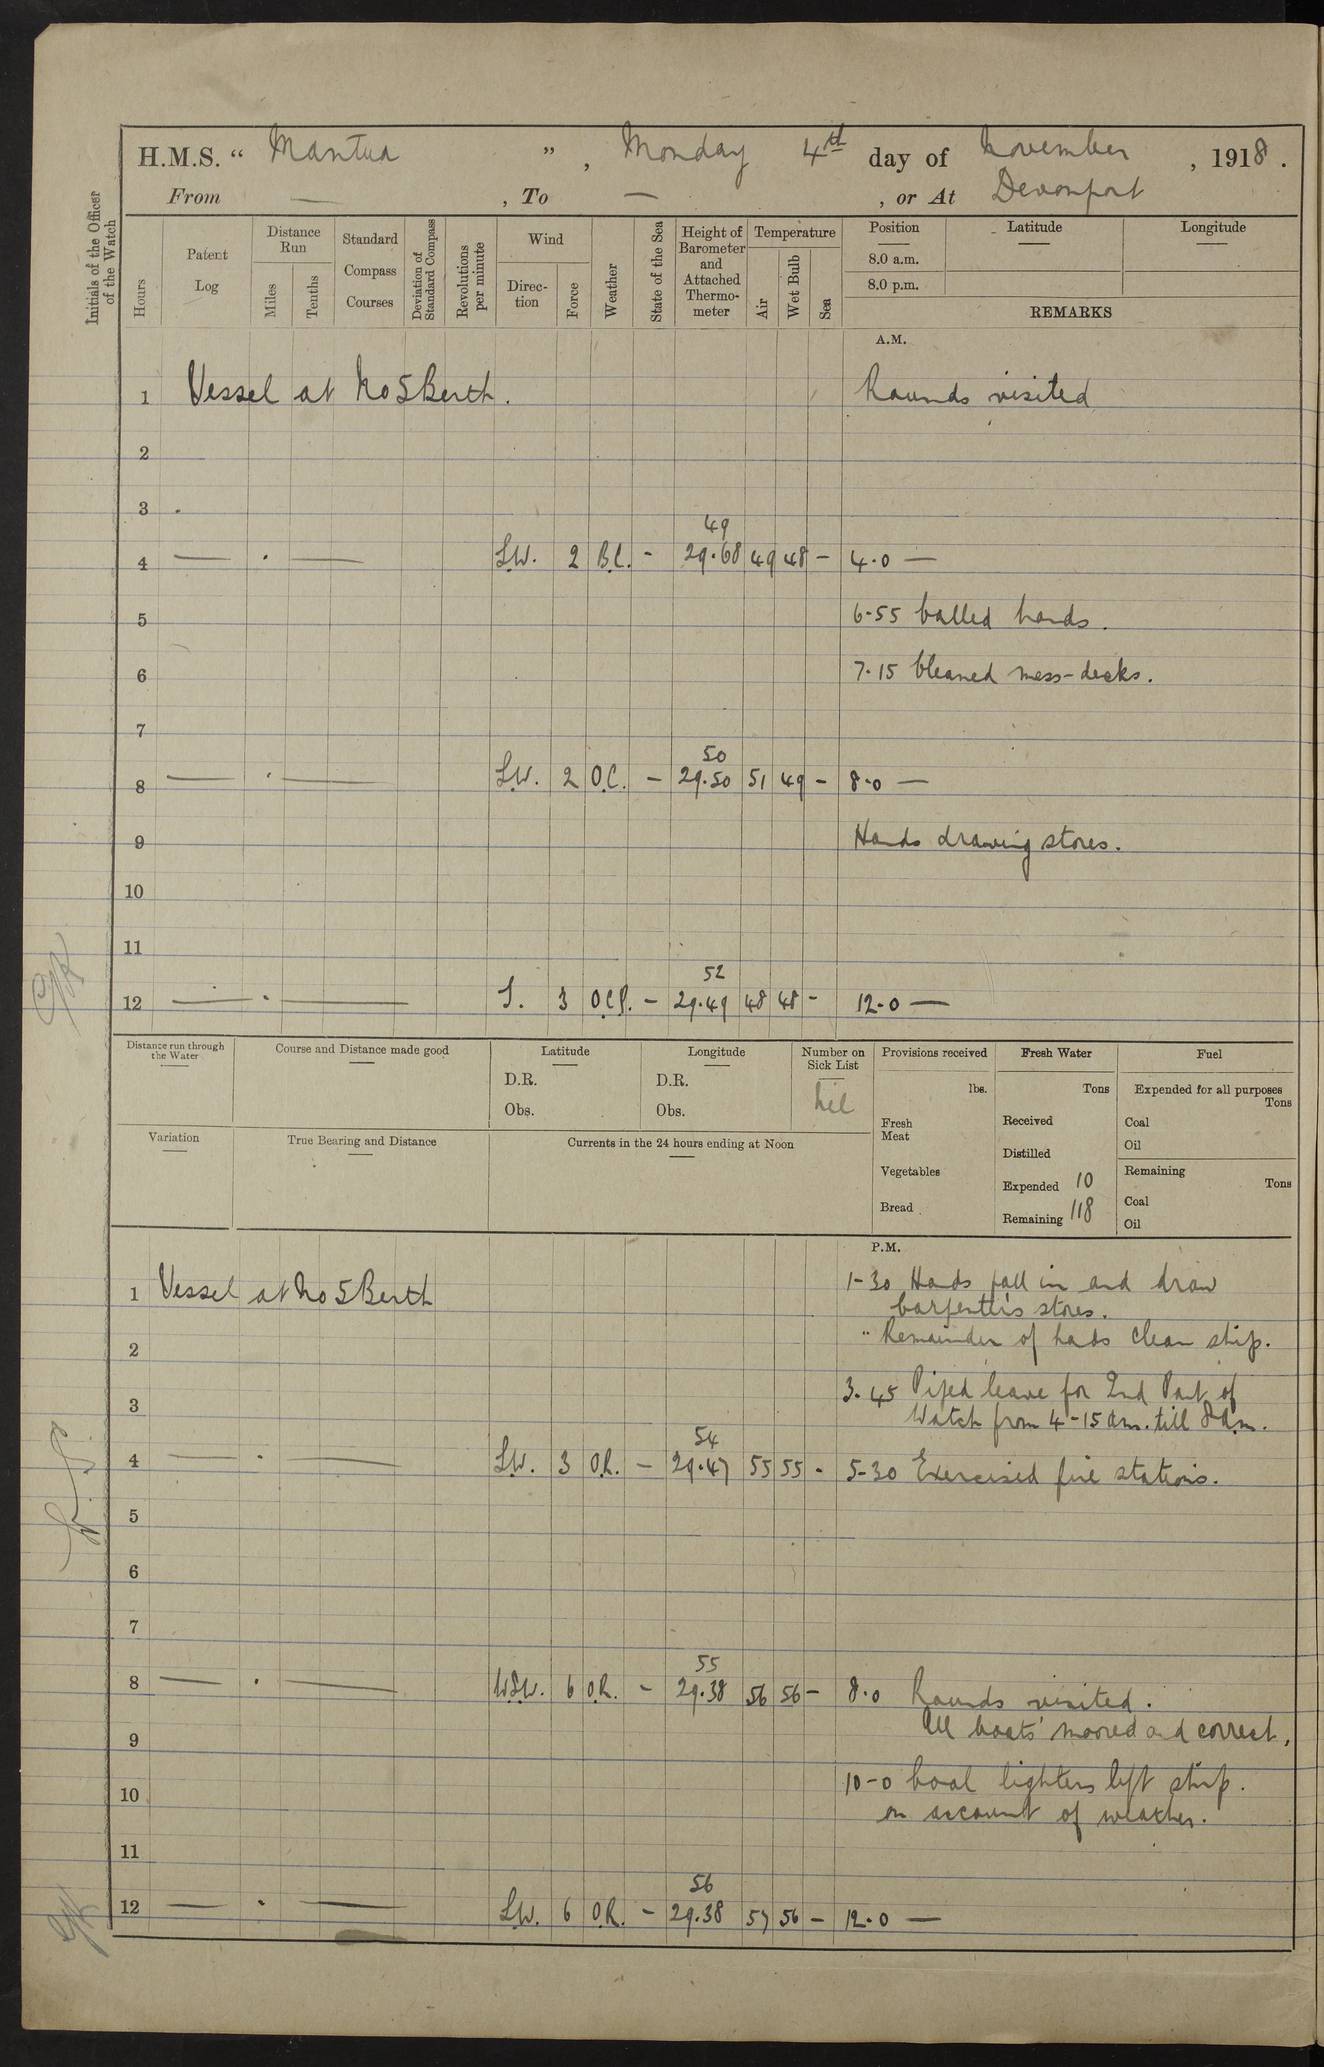 H.M.S. “ Mantua ” , Monday 4th day of November , 1918 .
From — , To — , or At Devonport
Initials of the Officer of the Watch
Hours
Patent Log
Distance Run
Miles
Tenths
Standard Compass Courses
Deviation of Standard Compass
Revolutions per minute
Wind
Direction
Force
Weather
State of the Sea
Height of Barometer and Attached Thermometer
Temperature
Air
Wet Bulb
Sea
Position
8.0 a.m.
8.0 p.m.
Latitude
Longitude
REMARKS
A.M.
1 Vessel at No 5 Berth. Rounds visited
2
3
49
4 — . — S.W. 2 B.C. - 29.68 49 48 - 4.0 —
5 6-55 Called hands.
6 7.15 Cleaned mess-decks.
7
50
8 — . — S.W. 2 O.C. - 29.50 51 49 - 8.0 —
9 Hands drawing stores.
10
11
52
12 — . — S. 3 O.C.P. - 29.49 48 48 - 12.0 —
Distance run through the Water
Course and Distance made good
Latitude
D.R.
Obs.
Longitude
D.R.
Obs.
Number on Sick List
Nil
Provisions received
lbs.
Fresh Meat
Vegetables
Bread
Fresh Water
Tons
Received
Distilled
Expended 10
Remaining 118
Fuel
Expended for all purposes
Tons
Coal
Oil
Remaining
Tons
Coal
Oil
Variation
True Bearing and Distance
Currents in the 24 hours ending at Noon
P.M.
1 Vessel at No 5 Berth 1-30 Hands fall in and draw
Carpenters stores.
2 " Remainder of hands clean ship.
3 3.45 Piped leave for 2nd Part of
Watch from 4-15 am. till 8 am.
54
4 — . — S.W. 3 O.R. - 29.47 55 55 - 5-30 Exercised fire stations.
5
6
7
55
8 — . — W.S.W. 6 O.R. - 29.38 56 56 - 8.0 Rounds visited.
9 All boats moored and correct,
10 10-0 Coal lighters left ship.
on account of weather.
11
56
12 — . — S.W. 6 O.R. - 29.38 57 56 - 12.0 —